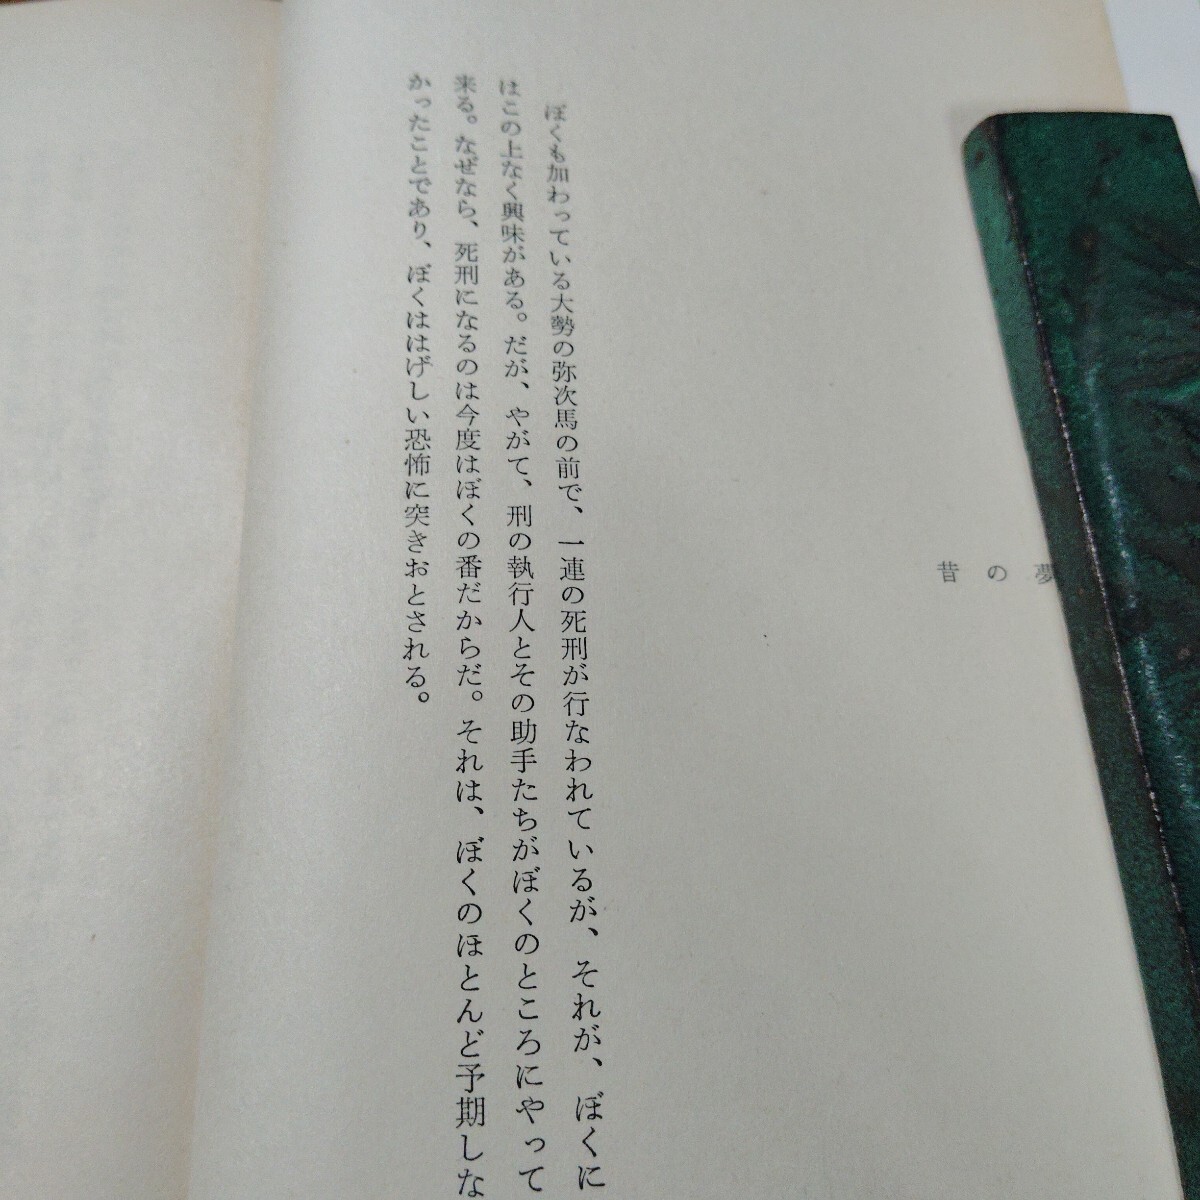 昔の夢
ぼくも加わっている大勢の弥次馬の前で、一連の死刑が行なわれているが、それが、ぼくに
はこの上なく興味がある。だが、やがて、刑の執行人とその助手たちがぼくのところにやって
来る。なぜなら、死刑になるのは今度はぼくの番だからだ。それは、ぼくのほとんど予期しな
かったことであり、ぼくははげしい恐怖に突きおとされる。